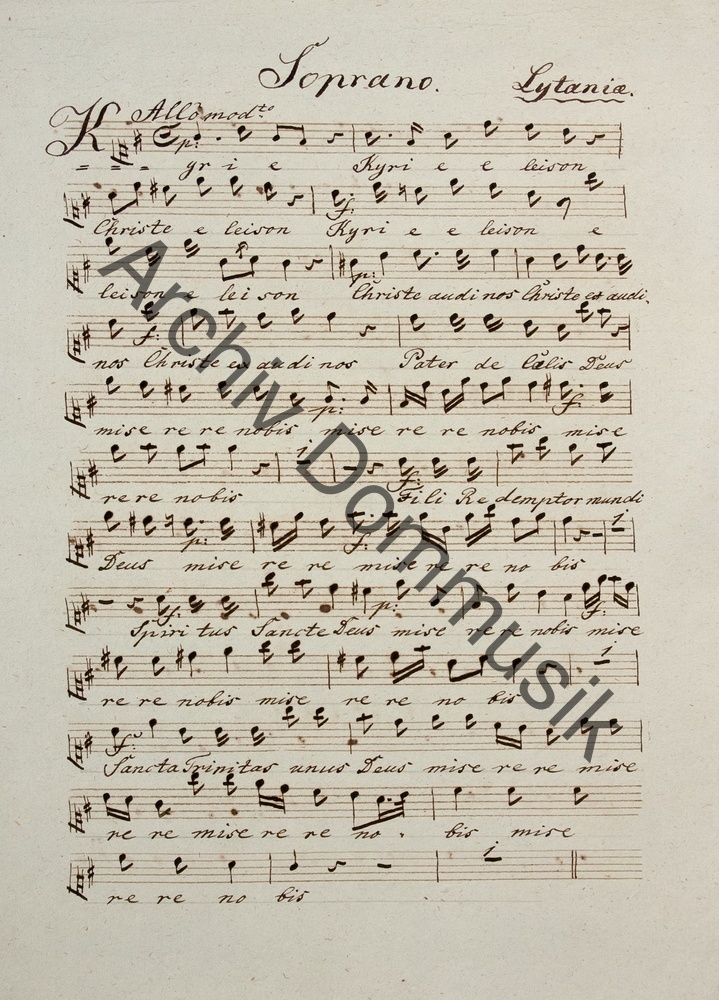 Soprano. Lytaniæ.
Allo modto
K p:
yri e Kyri e e leison
f:
Christe e leison Kyri e e leison e
p:
leison e lei son Christe audi nos Christe ex audi
f:
nos Christe ex audi nos Pater de Cœlis Deus
p: f:
mise re re nobis mise re re nobis mise
1 f:
re re nobis Fili Redemptor mundi
p: f: 1
Deus mise re re mise re re no bis
f: p: f:
Spiri tus Sancte Deus mise re re nobis mise
1
re re nobis mise re re no bis
f:
Sancta Trinitas unus Deus mise re re mise
re re mise re re no . bis mise
1
re re no bis
Archiv Dommusik